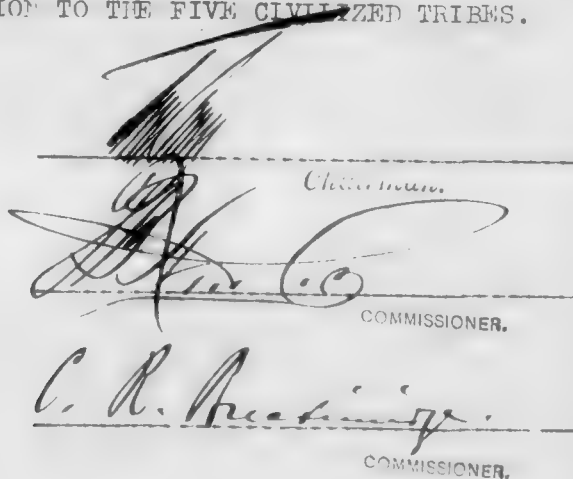 ION TO THE FIVE CIVILIZED TRIBES.
Chairman.
COMMISSIONER.
C. R. Breckinridge.
COMMISSIONER.